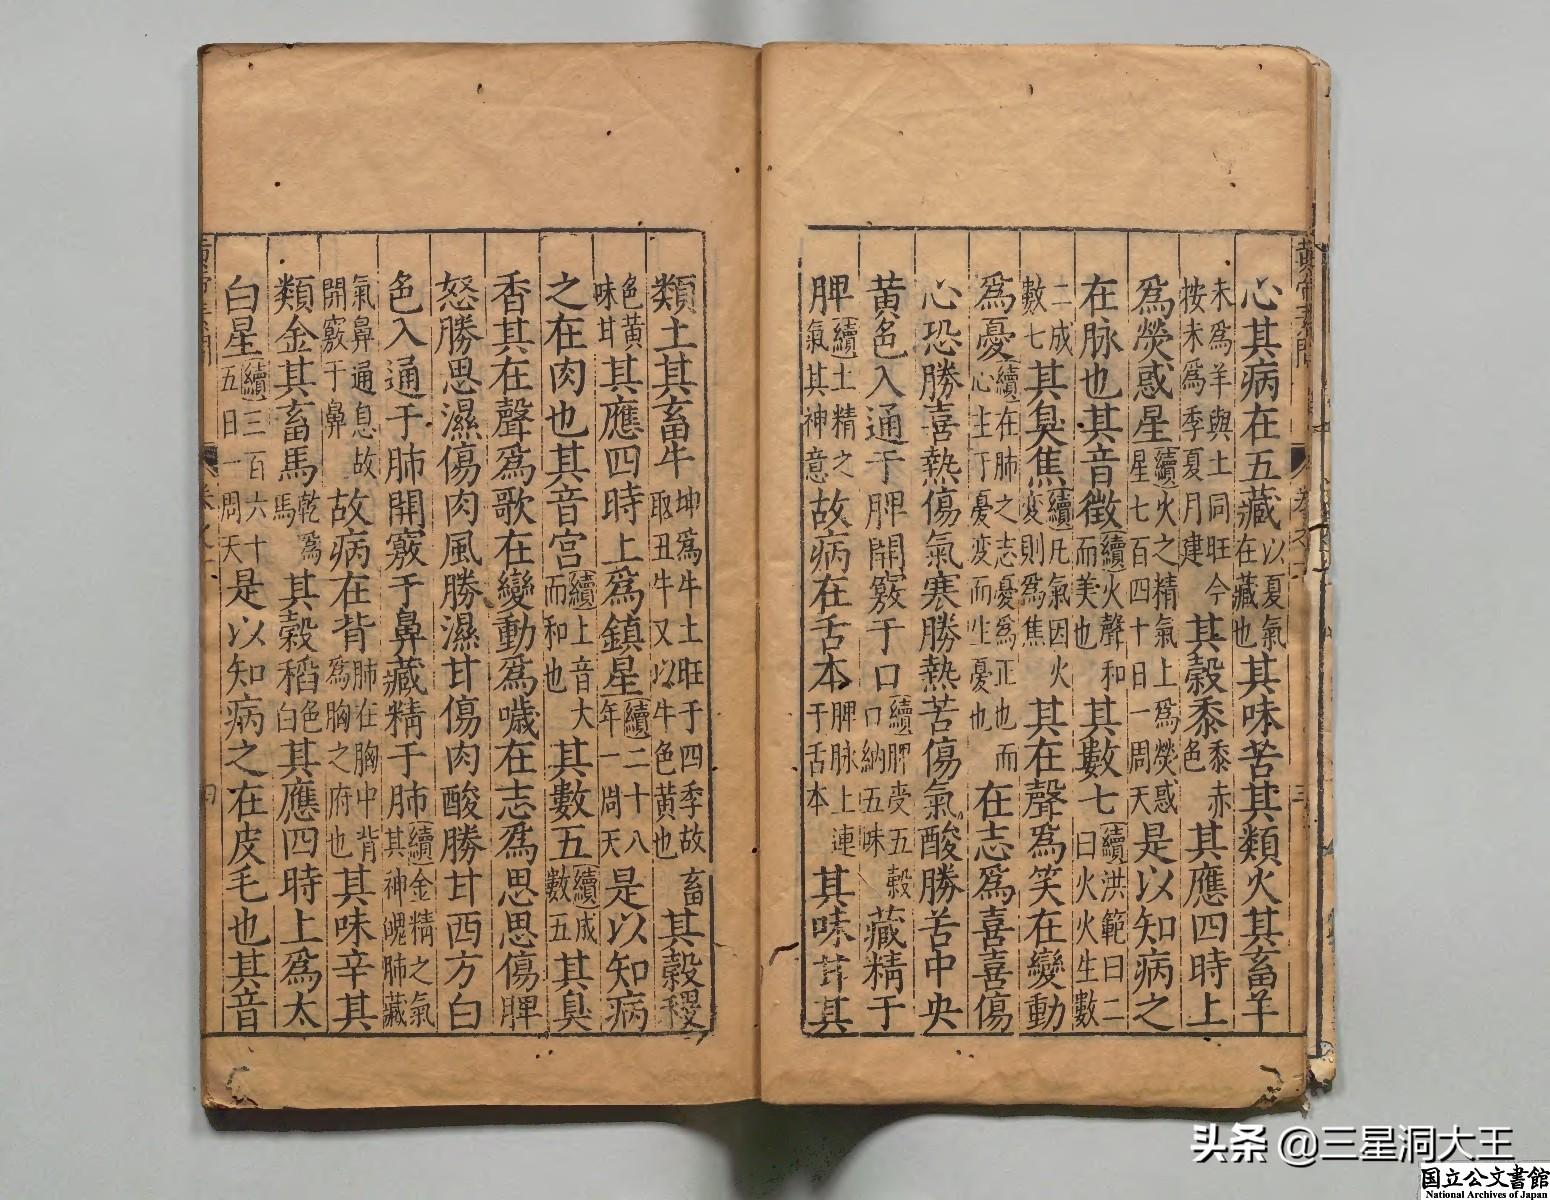 黃帝素問
心其病在五藏以夏氣在藏也其味苦其類火其畜羊
未爲羊與土同旺今按未爲季夏月建其穀黍黍赤色其應四時上
爲熒惑星續火之精氣上爲熒惑星七百四十日一周天是以知病之
在脉也其音徵續火聲和而美也其數七續洪範曰二曰火火生數
二成數七其臭焦續凡氣因火變則爲焦其在聲爲笑在變動
爲憂續在肺之志憂爲正也而心主于憂變而生憂也在志爲喜喜傷
心恐勝喜熱傷氣寒勝熱苦傷氣酸勝苦中央
黃色入通于脾開竅于口續脾受五穀口納五味藏精于
脾續土精之氣其神意故病在舌本脾脉上連于舌本其味甘其
類土其畜牛坤爲牛土旺于四季故畜取丑牛又以牛色黃也其穀稷
色黃味甘其應四時上爲鎮星續二十八年一周天是以知病
之在肉也其音宮續上音大而和也其數五續成數五其臭
香其在聲爲歌在變動爲噦在志爲思思傷脾
怒勝思濕傷肉風勝濕甘傷肉酸勝甘西方白
色入通于肺開竅于鼻藏精于肺續金精之氣其神魄肺藏
氣鼻通息故開竅于鼻故病在背肺在胸中背爲胸之府也其味辛其
類金其畜馬乾爲馬其穀稻色白其應四時上爲太
白星續三百六十五日一周天是以知病之在皮毛也其音
头条 @三星洞大王
国立公文書館
National Archives of Japan